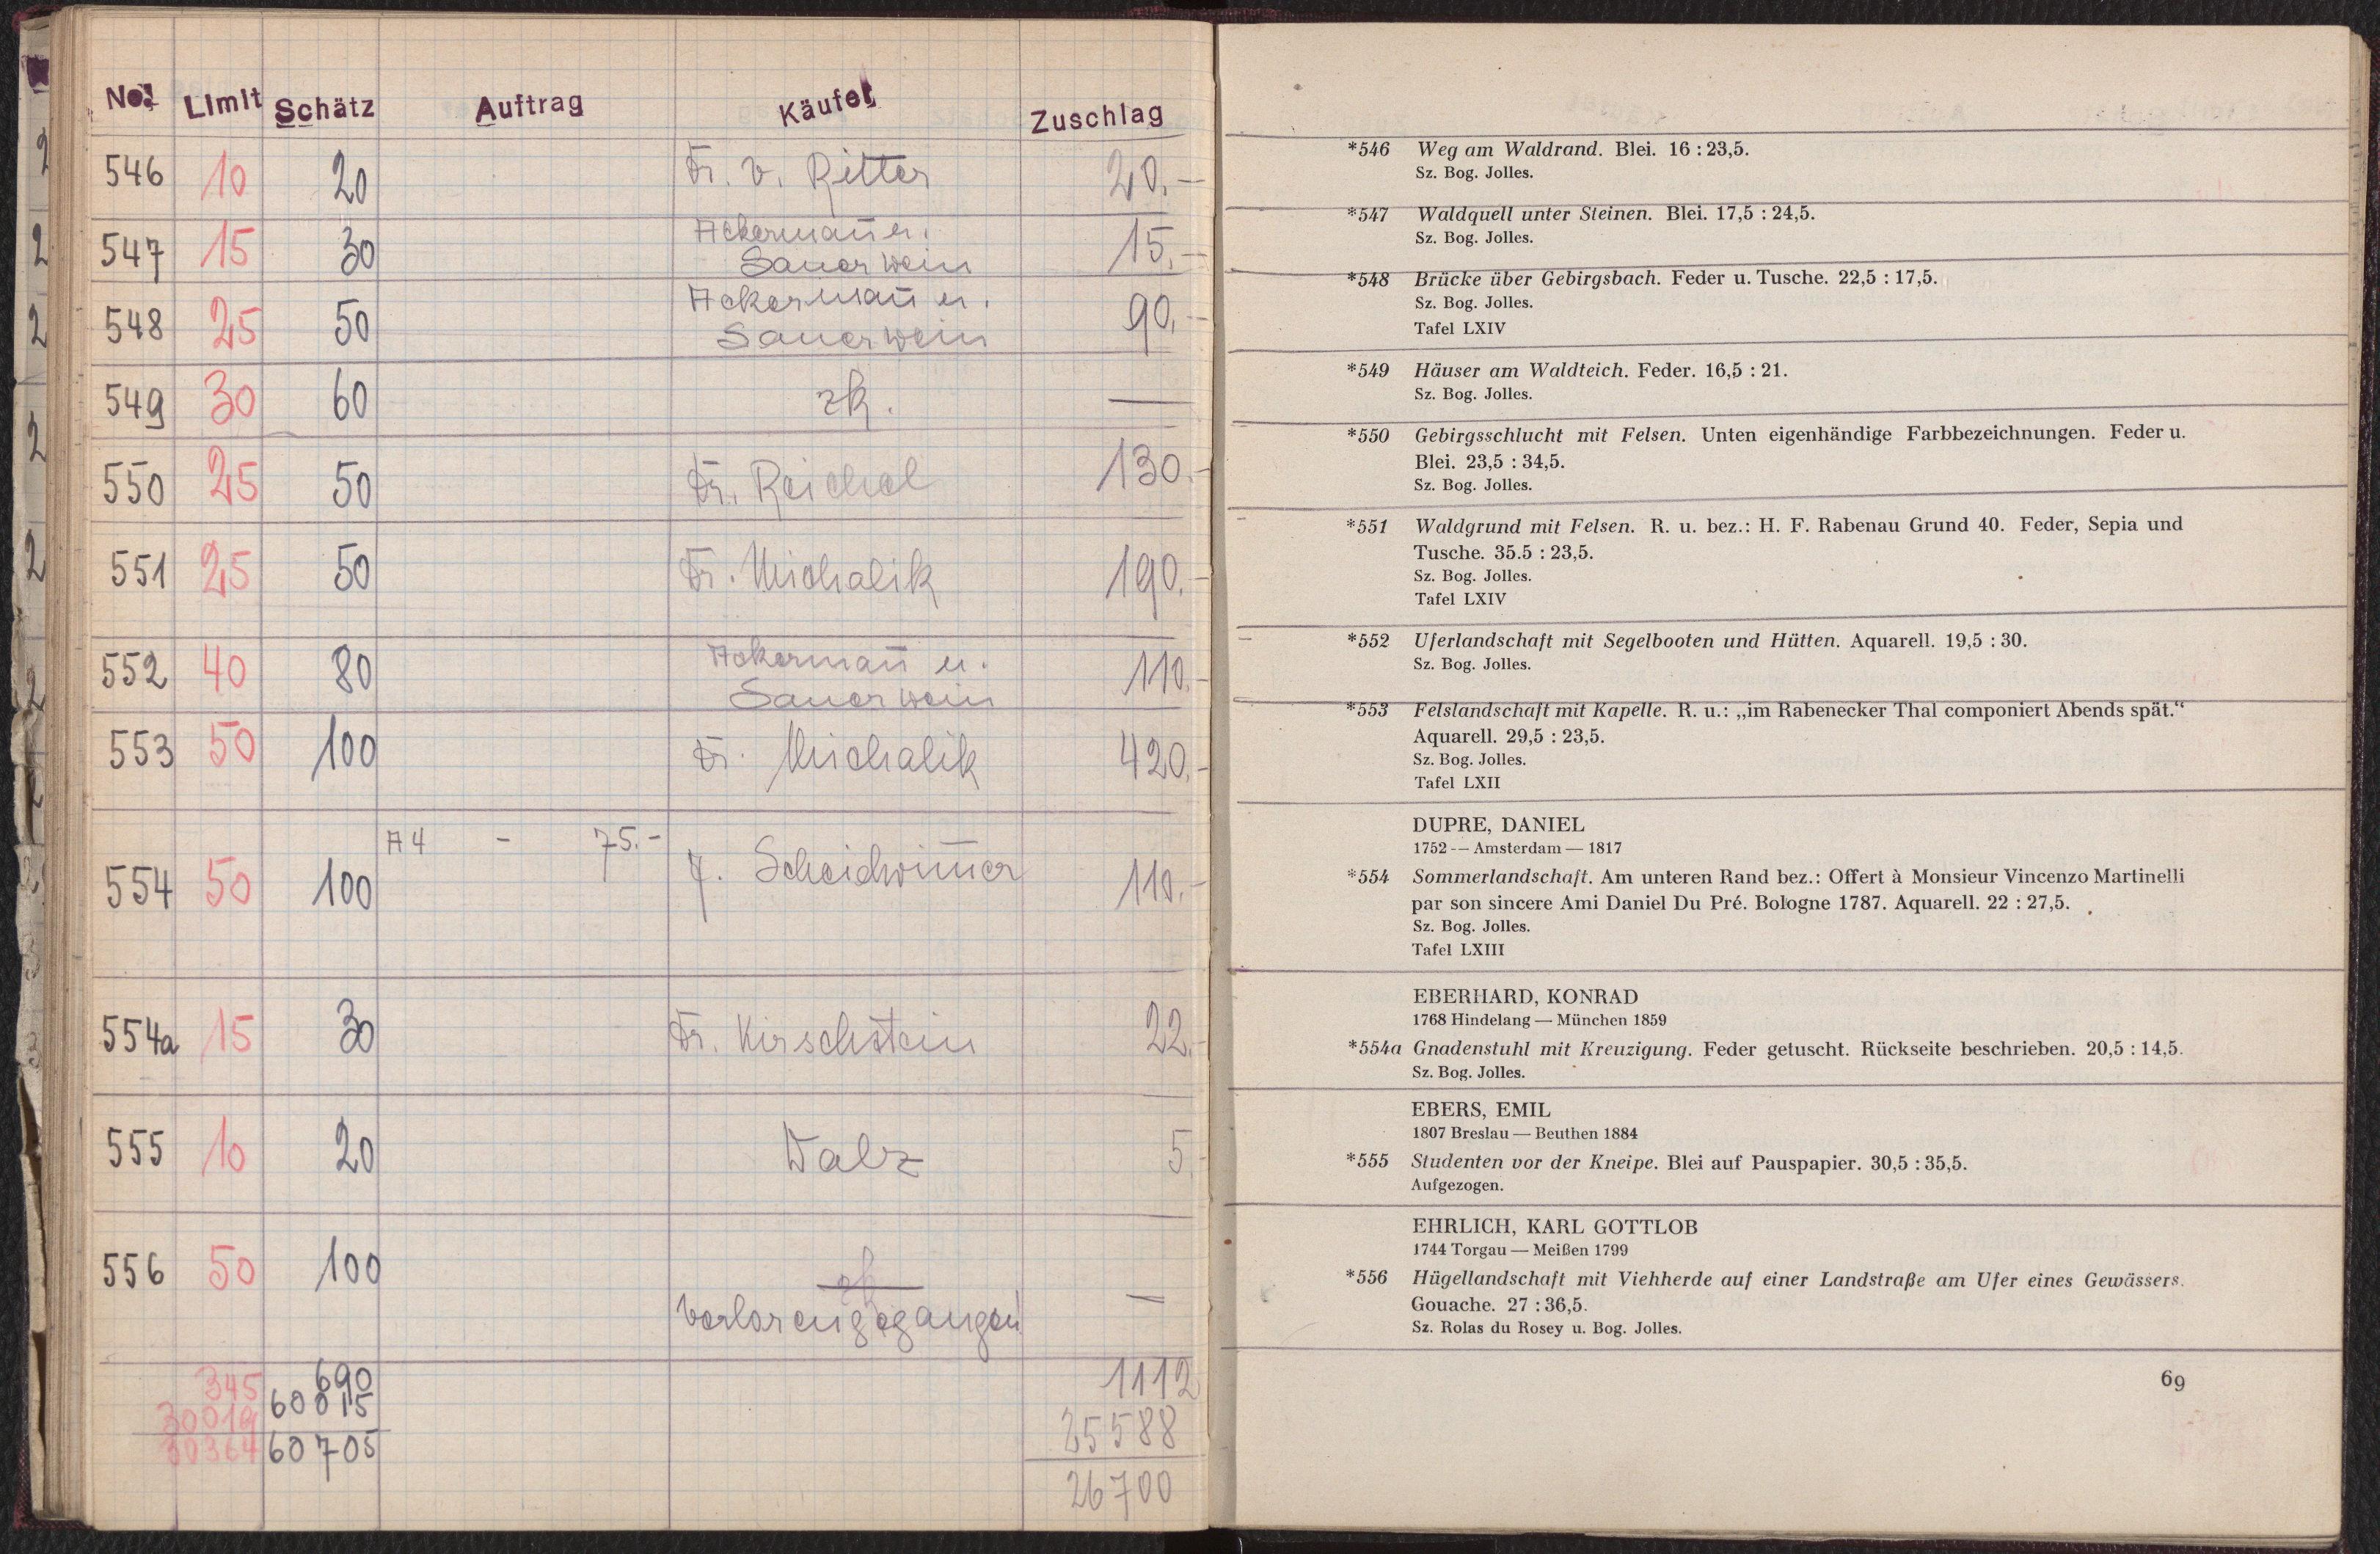 No: Limit Schätz Auftrag Käufer Zuschlag
546 10 20 Dr. v. Ritter 20.—
547 15 30 Ackermann u. Sauerwein 15.—
548 25 50 Ackermann u. Sauerwein 90.—
549 30 60 zk. —
550 25 50 Dr. Reichel 130.-
551 25 50 Dr. Michalik 190.-
552 40 80 Ackermann u. Sauerwein 110.-
553 50 100 Dr. Michalik 420.-
554 50 100 A4 - 75.- J. Scheidwimmer 110.-
554a 15 30 Dr. Kirschstein 22.-
555 10 20 Walz 5.-
556 50 100 zk
verlorengegangen! —
345 690 1112
30019 60015 25588
30364 60705 26700
*546 Weg am Waldrand. Blei. 16 : 23,5.
Sz. Bog. Jolles.
*547 Waldquell unter Steinen. Blei. 17,5 : 24,5.
Sz. Bog. Jolles.
*548 Brücke über Gebirgsbach. Feder u. Tusche. 22,5 : 17,5.
Sz. Bog. Jolles.
Tafel LXIV
*549 Häuser am Waldteich. Feder. 16,5 : 21.
Sz. Bog. Jolles.
*550 Gebirgsschlucht mit Felsen. Unten eigenhändige Farbbezeichnungen. Feder u.
Blei. 23,5 : 34,5.
Sz. Bog. Jolles.
*551 Waldgrund mit Felsen. R. u. bez.: H. F. Rabenau Grund 40. Feder, Sepia und
Tusche. 35.5 : 23,5.
Sz. Bog. Jolles.
Tafel LXIV
*552 Uferlandschaft mit Segelbooten und Hütten. Aquarell. 19,5 : 30.
Sz. Bog. Jolles.
*553 Felslandschaft mit Kapelle. R. u.: „im Rabenecker Thal componiert Abends spät.“
Aquarell. 29,5 : 23,5.
Sz. Bog. Jolles.
Tafel LXII
DUPRE, DANIEL
1752 -- Amsterdam — 1817
*554 Sommerlandschaft. Am unteren Rand bez.: Offert à Monsieur Vincenzo Martinelli
par son sincere Ami Daniel Du Pré. Bologne 1787. Aquarell. 22 : 27,5.
Sz. Bog. Jolles.
Tafel LXIII
EBERHARD, KONRAD
1768 Hindelang — München 1859
*554a Gnadenstuhl mit Kreuzigung. Feder getuscht. Rückseite beschrieben. 20,5 : 14,5.
Sz. Bog. Jolles.
EBERS, EMIL
1807 Breslau — Beuthen 1884
*555 Studenten vor der Kneipe. Blei auf Pauspapier. 30,5 : 35,5.
Aufgezogen.
EHRLICH, KARL GOTTLOB
1744 Torgau — Meißen 1799
*556 Hügellandschaft mit Viehherde auf einer Landstraße am Ufer eines Gewässers.
Gouache. 27 : 36,5.
Sz. Rolas du Rosey u. Bog. Jolles.
69